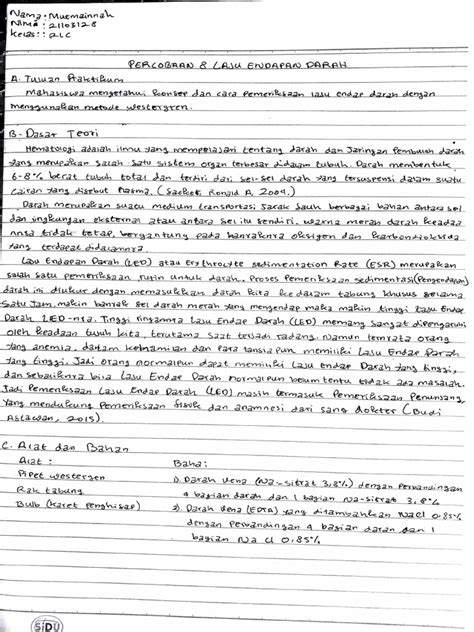 Nama : Mutmainnah
Nim : 21103128
Kelas : 21C
PERCOBAAN 8 LAJU ENDAPAN DARAH
A. Tujuan Praktikum
Mahasiswa mengetahui konsep dan cara pemeriksaan laju endap darah dengan
menggunakan metode westergren.
B. Dasar Teori
Hematologi adalah ilmu yang mempelajari tentang darah dan Jaringan Pembuluh darah
yang merupakan salah satu sistem organ terbesar didalam tubuh. Darah membentuk
6-8% berat tubuh total dan terdiri dari sel-sel darah yang tersuspensi dalam suatu
cairan yang disebut Plasma. (Sacher Ronald A, 2009.)
Darah merupakan suatu medium transportasi Jarak Jauh berbagai bahan antara sel
dan lingkungan eksternal atau antara sel itu sendiri. Warna merah darah keadaa
nnya tidak tetap, bergantung pada banyaknya oksigen dan karbondioksida
yang terdapat didalamnya.
Laju Endapan Darah (LED) atau Erythrocyte sedimentation Rate (ESR) merupakan
salah satu pemeriksaan rutin untuk darah. Proses Pemeriksaan sedimentasi (Pengendapan)
darah ini diukur dengan memasukkan darah kita ke dalam tabung khusus selama
Satu Jam. Makin banyak sel darah merah yang mengendap maka makin tinggi Laju Endap
Darah LED-nya. Tinggi ringannya Laju Endap Darah (LED) memang sangat dipengaruhi
oleh keadaan tubuh kita, terutama saat terjadi radang. Namun ternyata orang
yang anemia, dalam kehamilan dan para lansia pun memiliki Laju Endap Darah
yang tinggi. Jadi orang normal pun dapat memiliki laju endap Darah yang tinggi,
dan sebaliknya bila Laju Endap Darah normal pun belum tentu tidak ada masalah.
Jadi Pemeriksaan Laju Endap Darah (LED) masih termasuk Pemeriksaan Penunjang
yang mendukung Pemeriksaan fisik dan anamnesi dari sang dokter (Budi
Aslawan, 2015).
C. Alat dan Bahan
Alat :
Pipet westergen
Rak tabung
Bulb (karet penghisap)
Baha :
1). Darah Vena (Na-sitrat 3,8%) dengan perbandingan
4 bagian darah dan 1 bagian Na-sitrat 3,8%
2). Darah Vena (EDTA) yang ditambahkan NaCl 0.85%
dengan perbandingan 4 bagian darah dan 1
bagian Na Cl 0,85%
SIDU